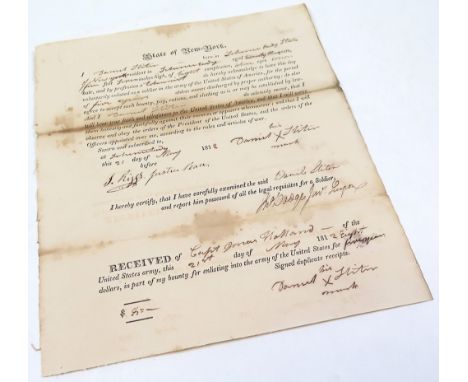 State of New-York.
I Daniel born in Schenectady State
of New York resident in Schenectady aged
five feet inches high, of light complexion, eyes,
hair, and by profession a do hereby acknowledge to have this day
voluntarily enlisted as a soldier in the army of the United States of America, for the period
of five years unless sooner discharged by proper authority: do also
agree to accept such bounty, pay, rations, and clothing as is or may be established by
And I Daniel do solemnly swear, that I
will bear true faith and allegiance to the United States of America, and that I will serve
them honestly and faithfully against their enemies or opposers whomsoever; and that I will
observe and obey the orders of the President of the United States, and the orders of the
Officers appointed over me, according to the rules and articles of war.
Sworn and subscribed to,
at Schenectady
this 21 day of May 181
before
his
Daniel X
mark
J. Riggs Justice Peace
I hereby certify, that I have carefully examined the said Daniel
and report him possessed of all the legal requisites for a Soldier.
RECEIVED of Capt Jonas Holland of the
United States army, this 21st day of May 181 Eight
dollars, in part of my bounty for enlisting into the army of the United States for
Signed duplicate receipts.
his
Daniel X
mark
$ 8